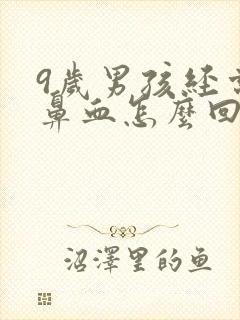 9歲男孩經常
鼻血怎麼回
沼澤里的鱼